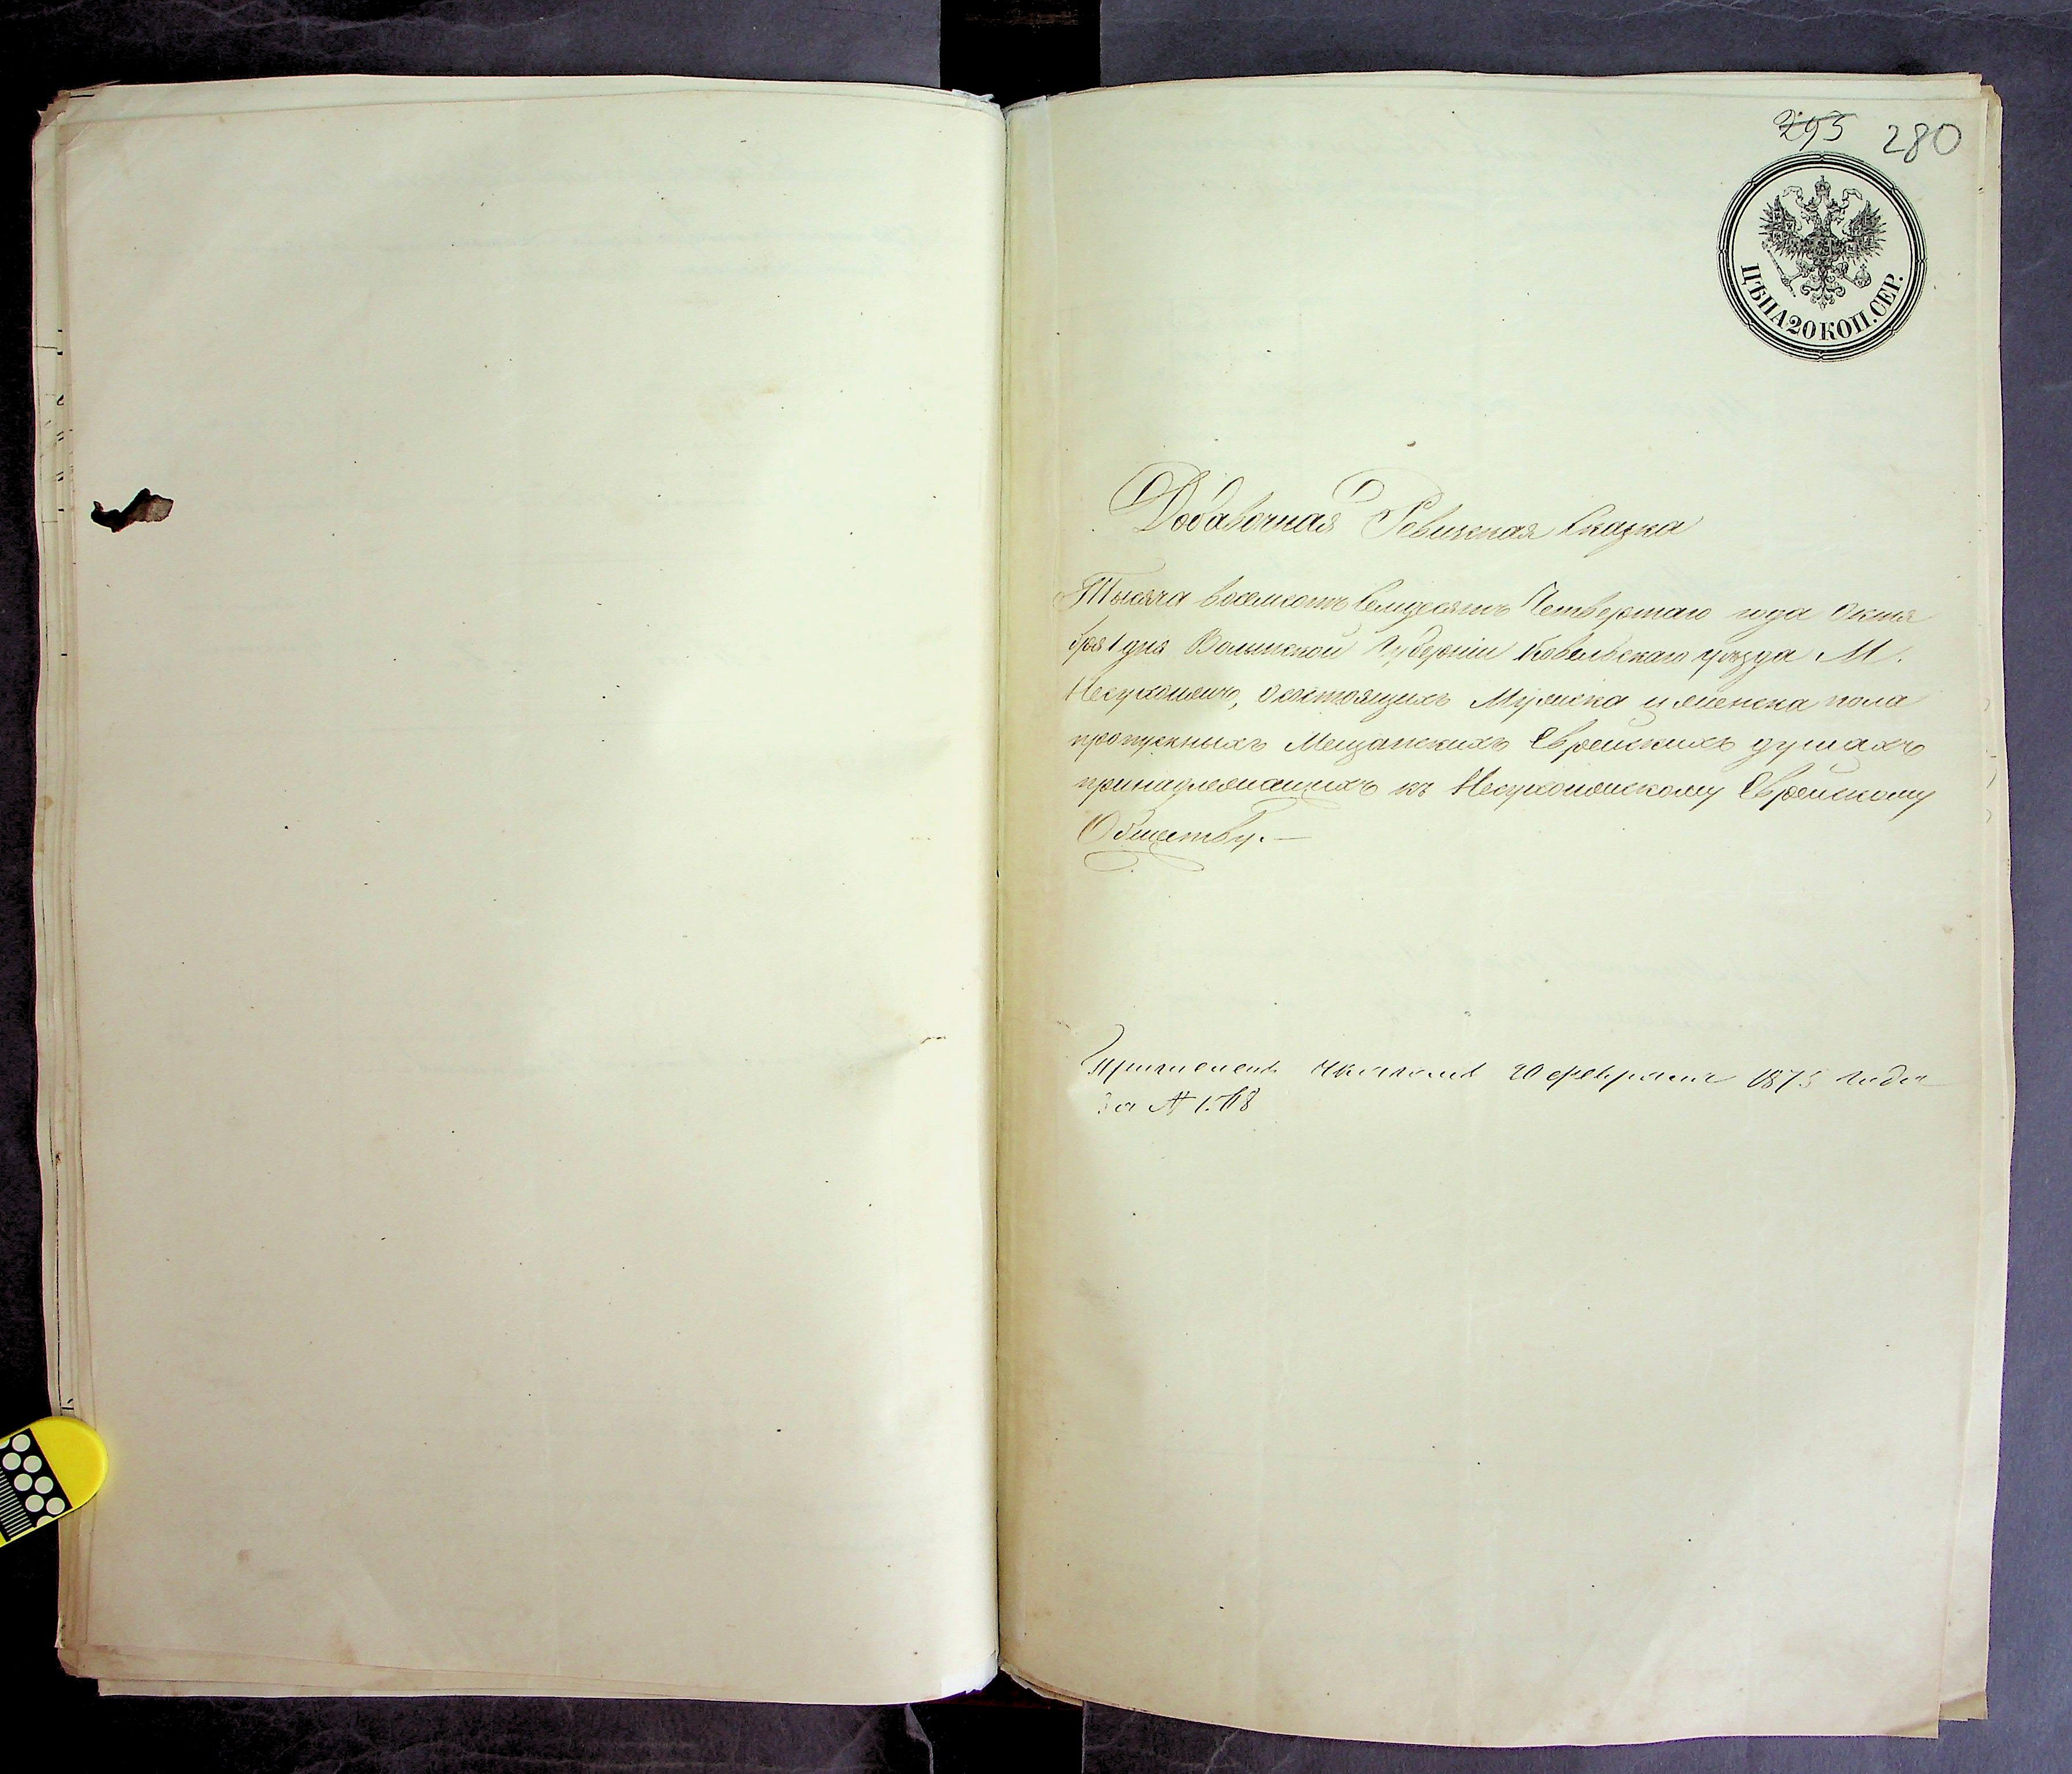 295 280
ЦѢНА 20 КОП. СЕР.
Добавочная Ревизская Сказка
Тысяча восемсотъ Семдесятъ Четвертаго года Октя
бря 1 дня Волынской Губерніи Ковельскаго уѣзда М.
Несухоижъ, о состоящихъ Мужеска и женска пола
пропускныхъ Мещанскихъ Еврейскихъ душахъ
принадлежащихъ къ Несухоижскому Еврейскому
Обществу.—
20 февраля 1875 года
За №